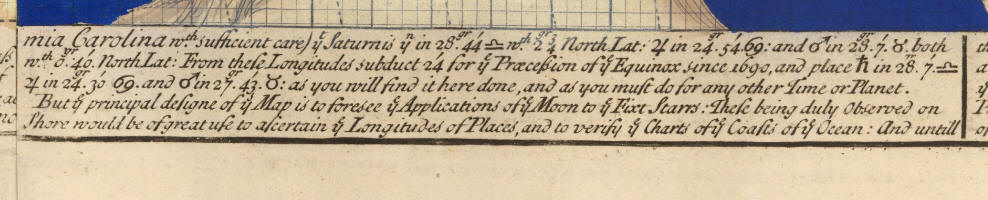 mia Carolina wth sufficient care) yt Saturn is yn in 28gr. 44' ♎ wth 2gr ¾ North Lat: ♃ in 24gr. 54'. ♋: and ♂ in 28gr. 7'. ♉. both
wth 0gr: 40'. North Lat: From these Longitudes subduct 24' for ye Præcession of ye Equinox since 1690, and place ♄ in 28. 7. ♎
♃ in 24gr. 30' ♋. and ♂ in 27gr. 43'. ♉: as you will find it here done, and as you must do for any other Time or Planet.
But ye principal designe of ye Map is to foresee ye Applications of ye Moon to ye Fixt Starrs: These being duly Observed on
Shore would be of great use to ascertain ye Longitudes of Places, and to verify ye Charts of ye Coasts of ye Ocean: And untill